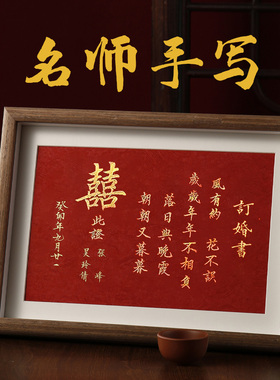 名师手写
訂婚書
風有約 花不誤
歲歲年年不相負
落日與晚霞
朝朝又暮暮
囍
此證
张峰
吴玲
癸卯年 月廿一